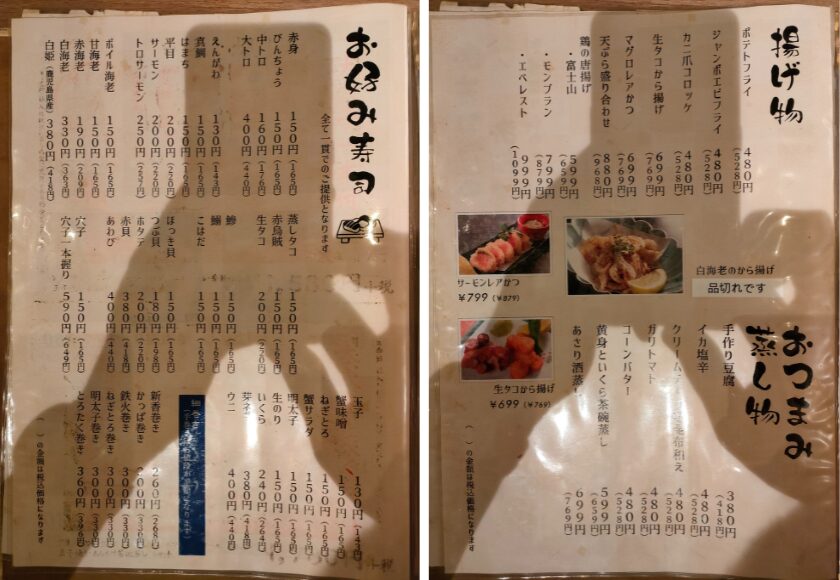 お好み寿司
全て一貫でのご提供となります
赤身 150円(165円)
びんちょう 150円(165円)
中トロ 160円(176円)
大トロ 400円(440円)
えんがわ 130円(143円)
真鯛 150円(165円)
はまち 150円(165円)
平目 200円(220円)
サーモン 200円(220円)
トロサーモン 250円
ボイル海老 150円(165円)
甘海老 150円(165円)
赤海老 190円(209円)
白海老 330円(363円)
白姫(鹿児島県産) 380円(418円)
蒸しタコ 150円(165円)
赤烏賊 150円(165円)
生タコ 200円(220円)
鯵 150円(165円)
鰯 150円(165円)
こはだ 150円(165円)
ほっき貝 150円(165円)
つぶ貝 180円(198円)
ホタテ 200円(220円)
赤貝 380円(418円)
あわび 400円(440円)
穴子 150円(165円)
穴子一本握り 590円(649円)
玉子 130円(143円)
蟹味噌 150円(165円)
ねぎとろ 150円(165円)
蟹サラダ 150円(165円)
明太子 150円(165円)
生のり 150円(165円)
いくら 240円(264円)
380円(418円)
ウニ 400円(440円)
細巻き
新香巻き 260円
かっぱ巻き 200円(220円)
鉄火巻き 300円(330円)
ねぎとろ巻き 300円(330円)
明太子巻き 300円(330円)
とろたく巻き 360円(396円)
( )の金額は税込価格になります
揚げ物
ポテトフライ 480円(528円)
ジャンボエビフライ 480円(528円)
カニ爪コロッケ 480円(528円)
生タコから揚げ 699円(769円)
マグロレアかつ 699円(769円)
天ぷら盛り合わせ 880円(968円)
鶏の唐揚げ
・富士山 599円(659円)
・モンブラン 799円(879円)
・エベレスト 999円(1099円)
サーモンレアかつ
¥799(¥879)
白海老のから揚げ
品切れです
生タコから揚げ
¥699(¥769)
おつまみ
蒸し物
手作り豆腐 380円(418円)
イカ塩辛 480円(528円)
クリーム 480円(528円)
ガリトマト 480円(528円)
コーンバター 480円(528円)
黄身といくら茶碗蒸し 599円(659円)
あさり酒蒸し 699円(769円)
( )の金額は税込価格になります